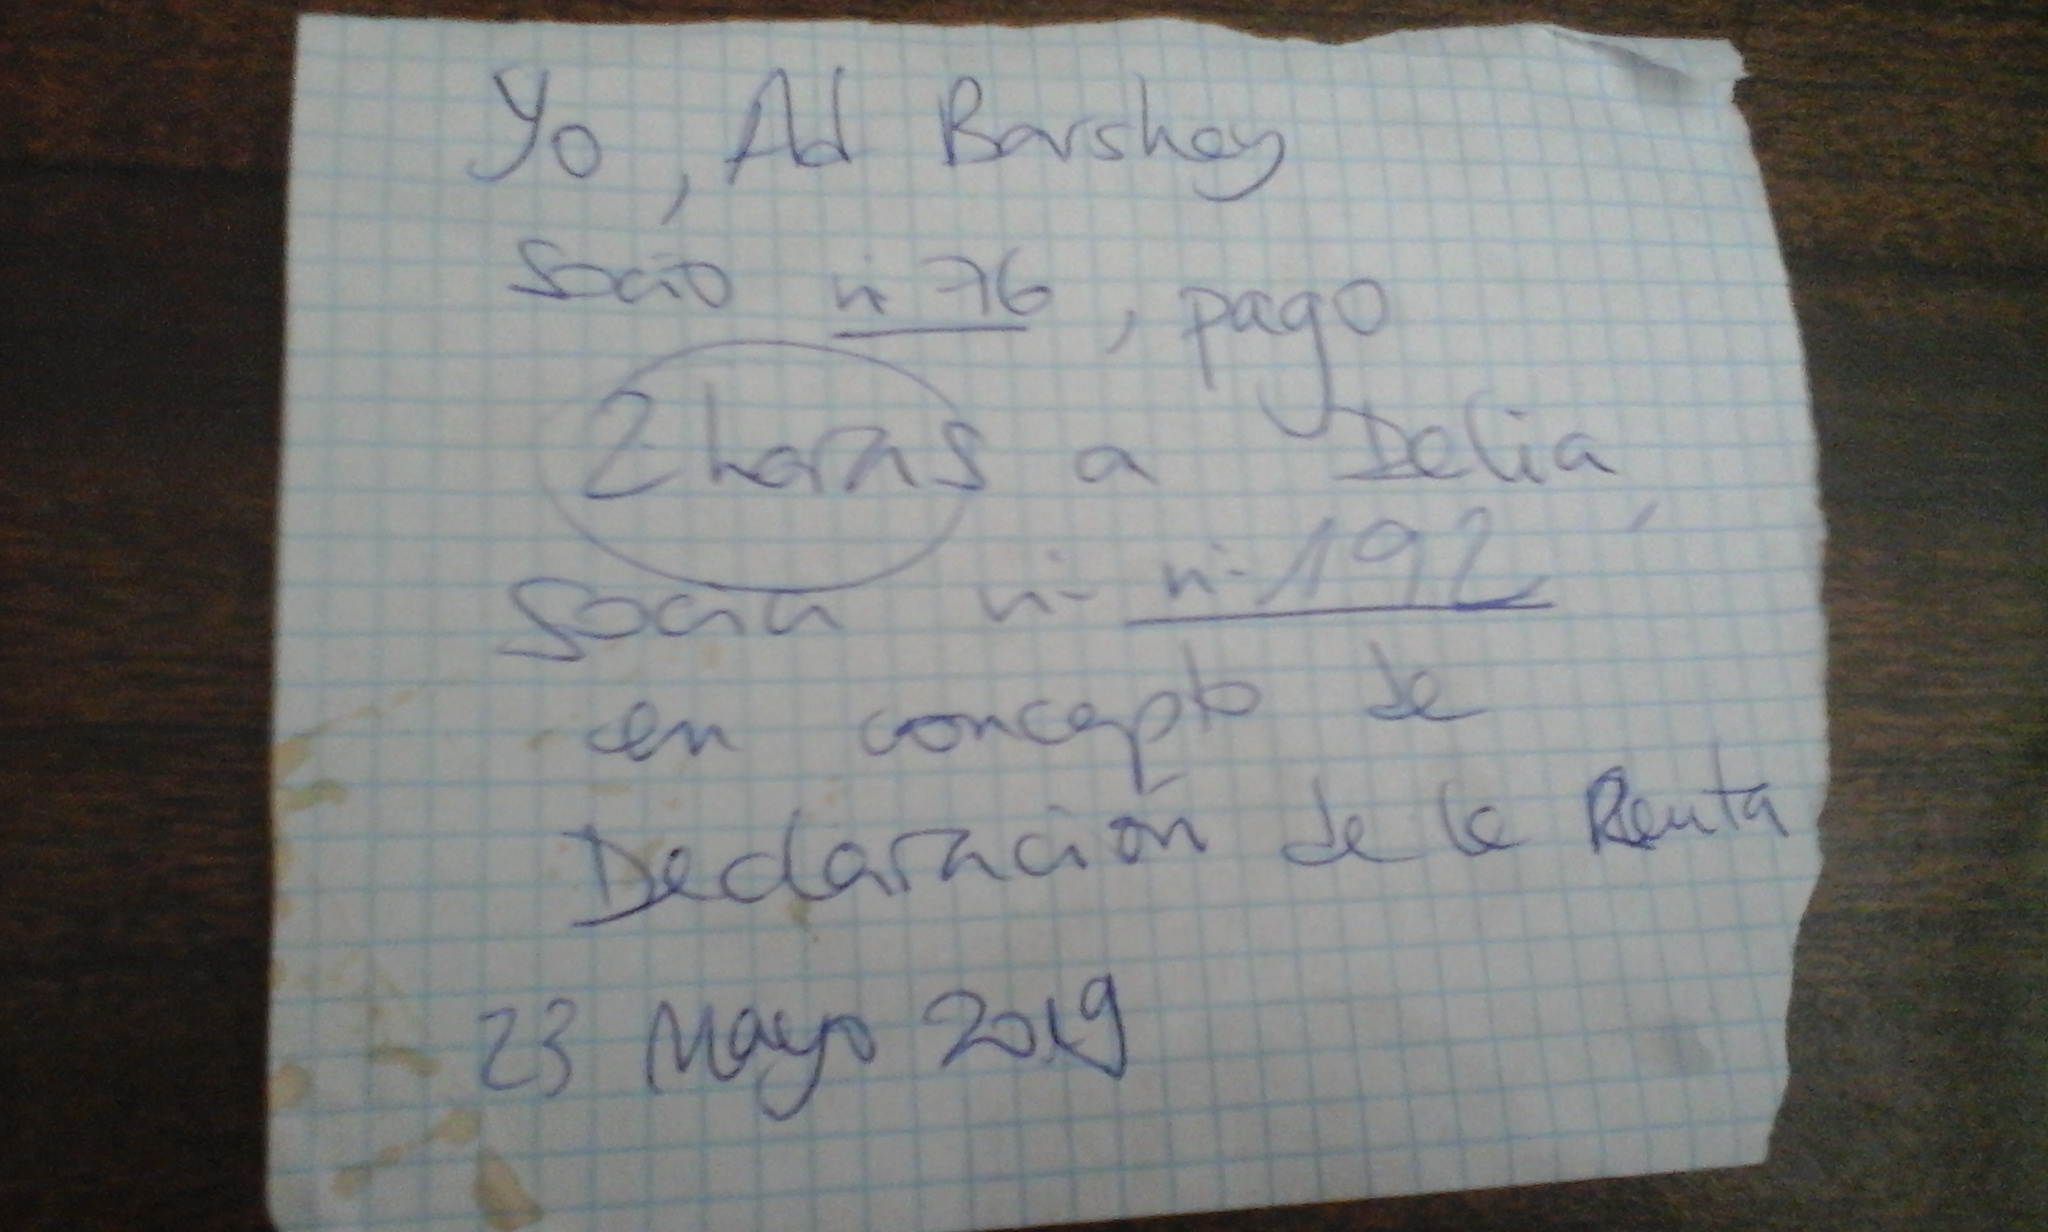 Yo, Ad Barshay
socio nº 76, pago
2 horas a Delia,
socia nº nº 192
en concepto de
Declaración de la Renta
23 Mayo 2019